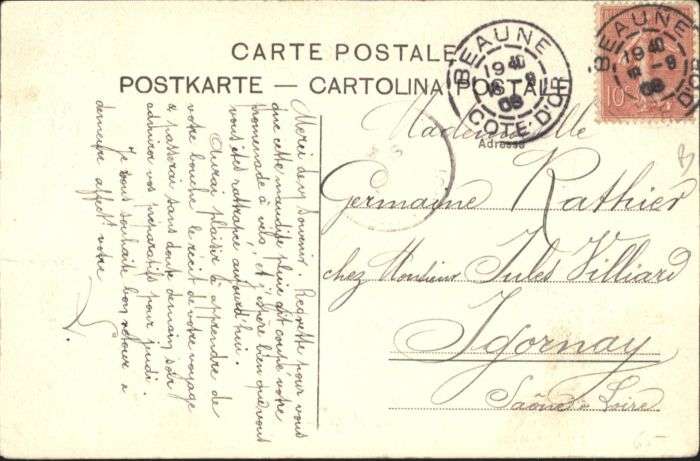 CARTE POSTALE
POSTKARTE — CARTOLINA POSTALE
BEAUNE
19 40
8-9
06
COTE D'OR
BEAUNE
19 40
8-9
06
D'OR
10
Adresse
Mademoiselle
Germaine Rathier
chez Monsieur Jules Villiard
Igornay
Saône & Loire
Merci de vos souvenirs. Regrette pour vous
que cette maudite pluie ait coupé votre
promenade à vélo, et j'espère bien que vous
vous êtes rattrapée aujourd'hui.
Aurai plaisir à apprendre de
votre bouche le récit de votre voyage
& passerai sans doute demain soir
admirer vos préparatifs pour jeudi.
Je vous souhaite bon retour &
demeure affectt vôtre
L.